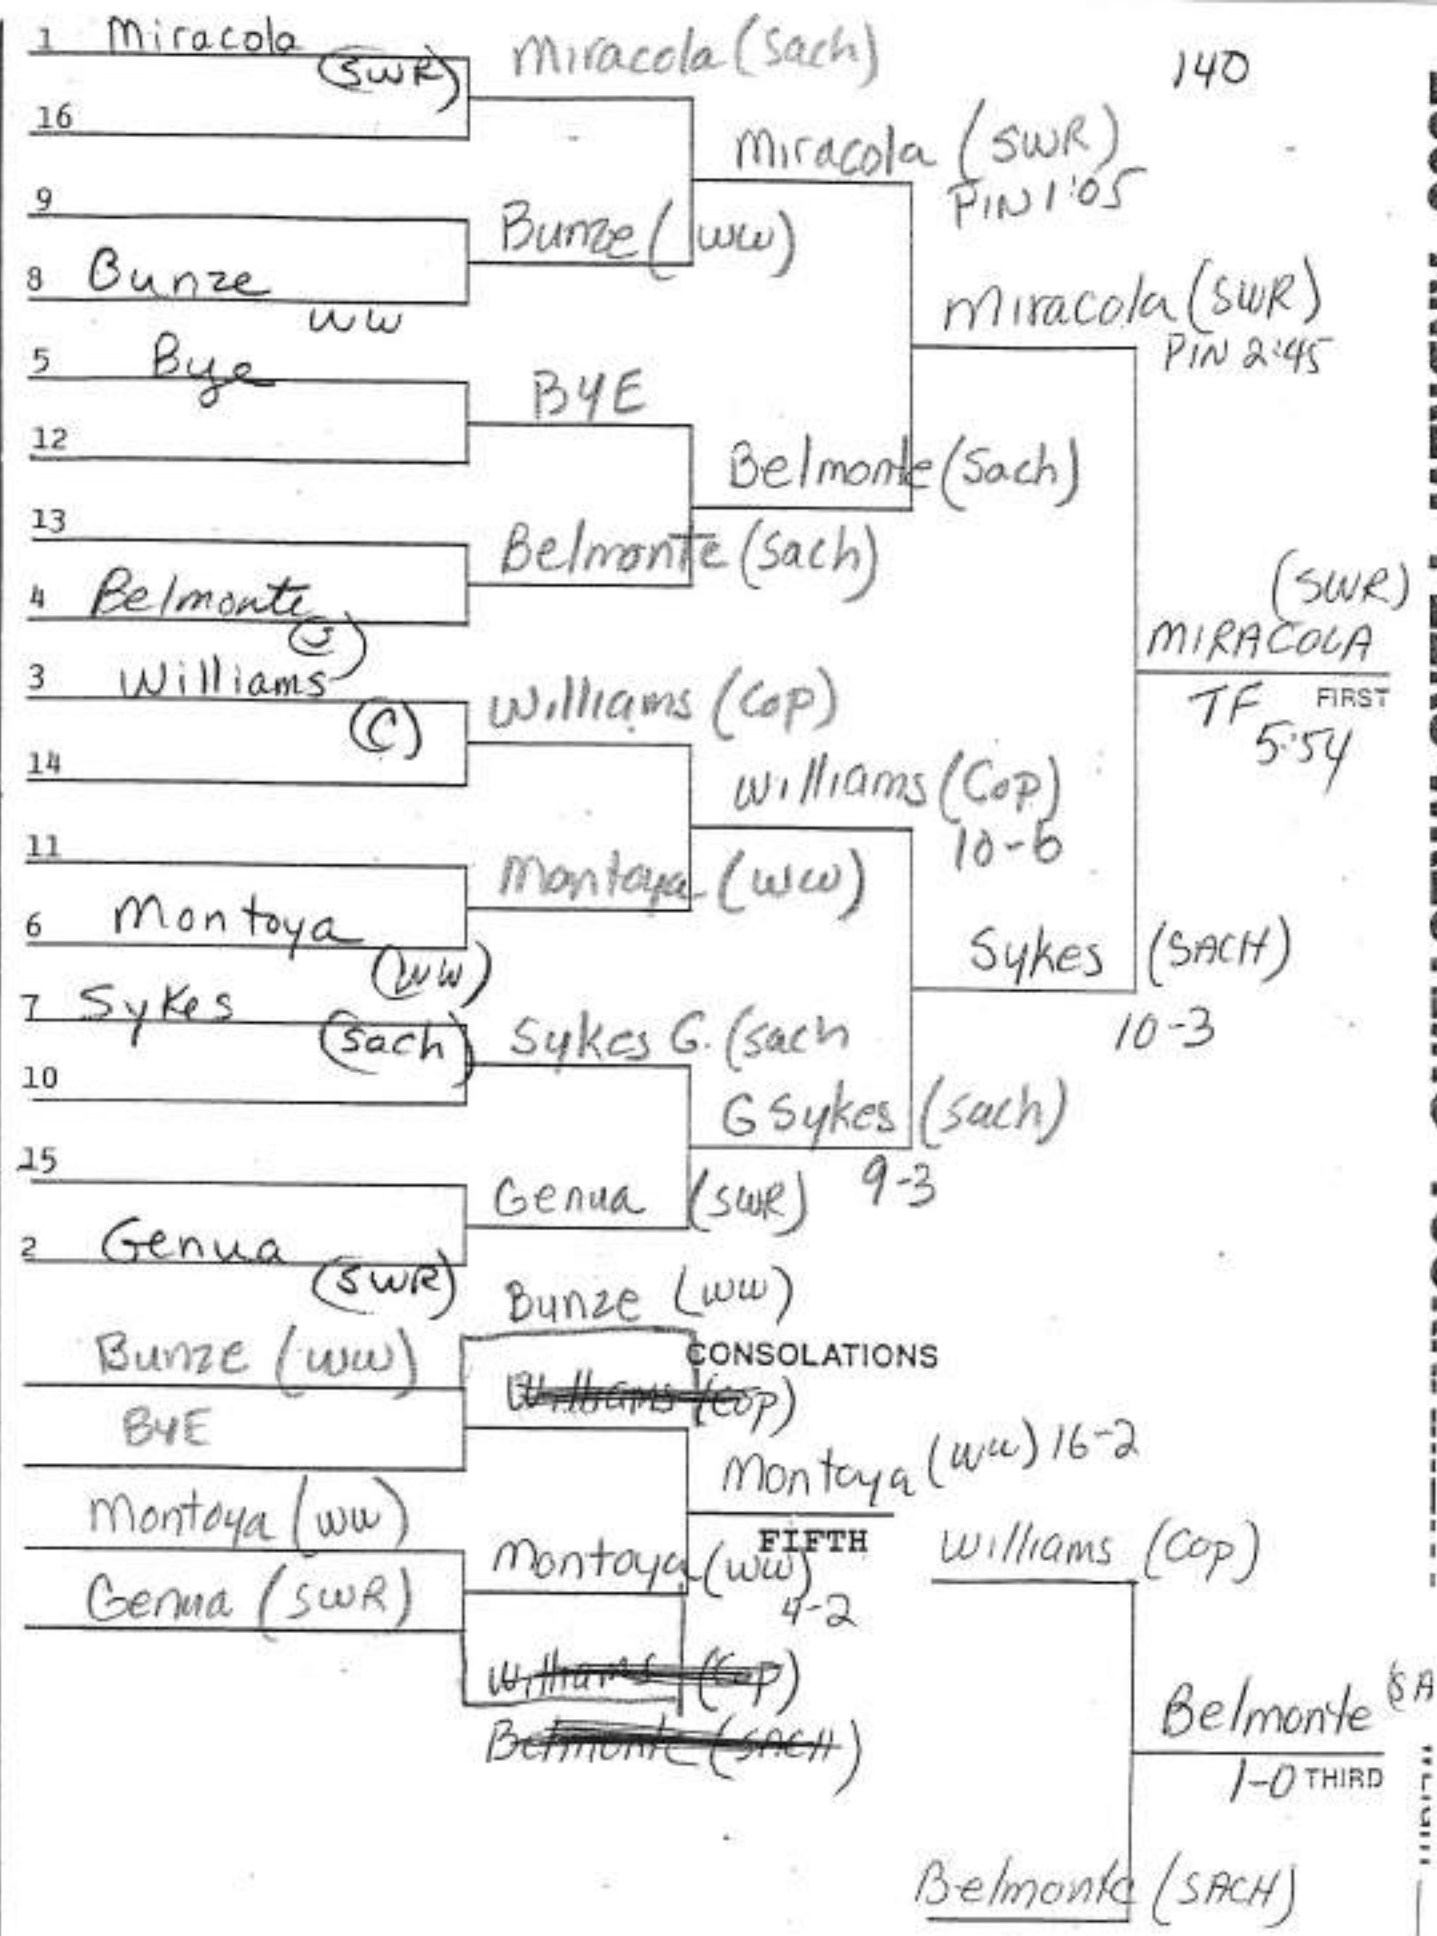 140
1 Miracola
(SWR)
16
9
8 Bunze
WW
5 Bye
12
13
4 Belmonte
(S)
3 Williams
(C)
14
11
6 Montoya
(WW)
7 Sykes
(Sach)
10
15
2 Genua
(SWR)
Miracola (Sach)
Bunze (WW)
BYE
Belmonte (Sach)
Williams (Cop)
Montoya (WW)
Sykes G. (Sach
Genua (SWR)
Miracola (SWR)
PIN 1:05
Belmonte (Sach)
Williams (Cop)
10-6
G Sykes (Sach)
9-3
Miracola (SWR)
PIN 2:45
Sykes (SACH)
10-3
(SWR)
MIRACOLA
FIRST
TF
5:54
CONSOLATIONS
Bunze (WW)
BYE
Montoya (WW)
Genua (SWR)
Bunze (WW)
Williams (Cop)
Montoya (WW)
4-2
Williams (Cop)
Belmonte (SACH)
Montoya (WW) 16-2
FIFTH
Williams (Cop)
Belmonte (SACH)
Belmonte (SA
1-0 THIRD